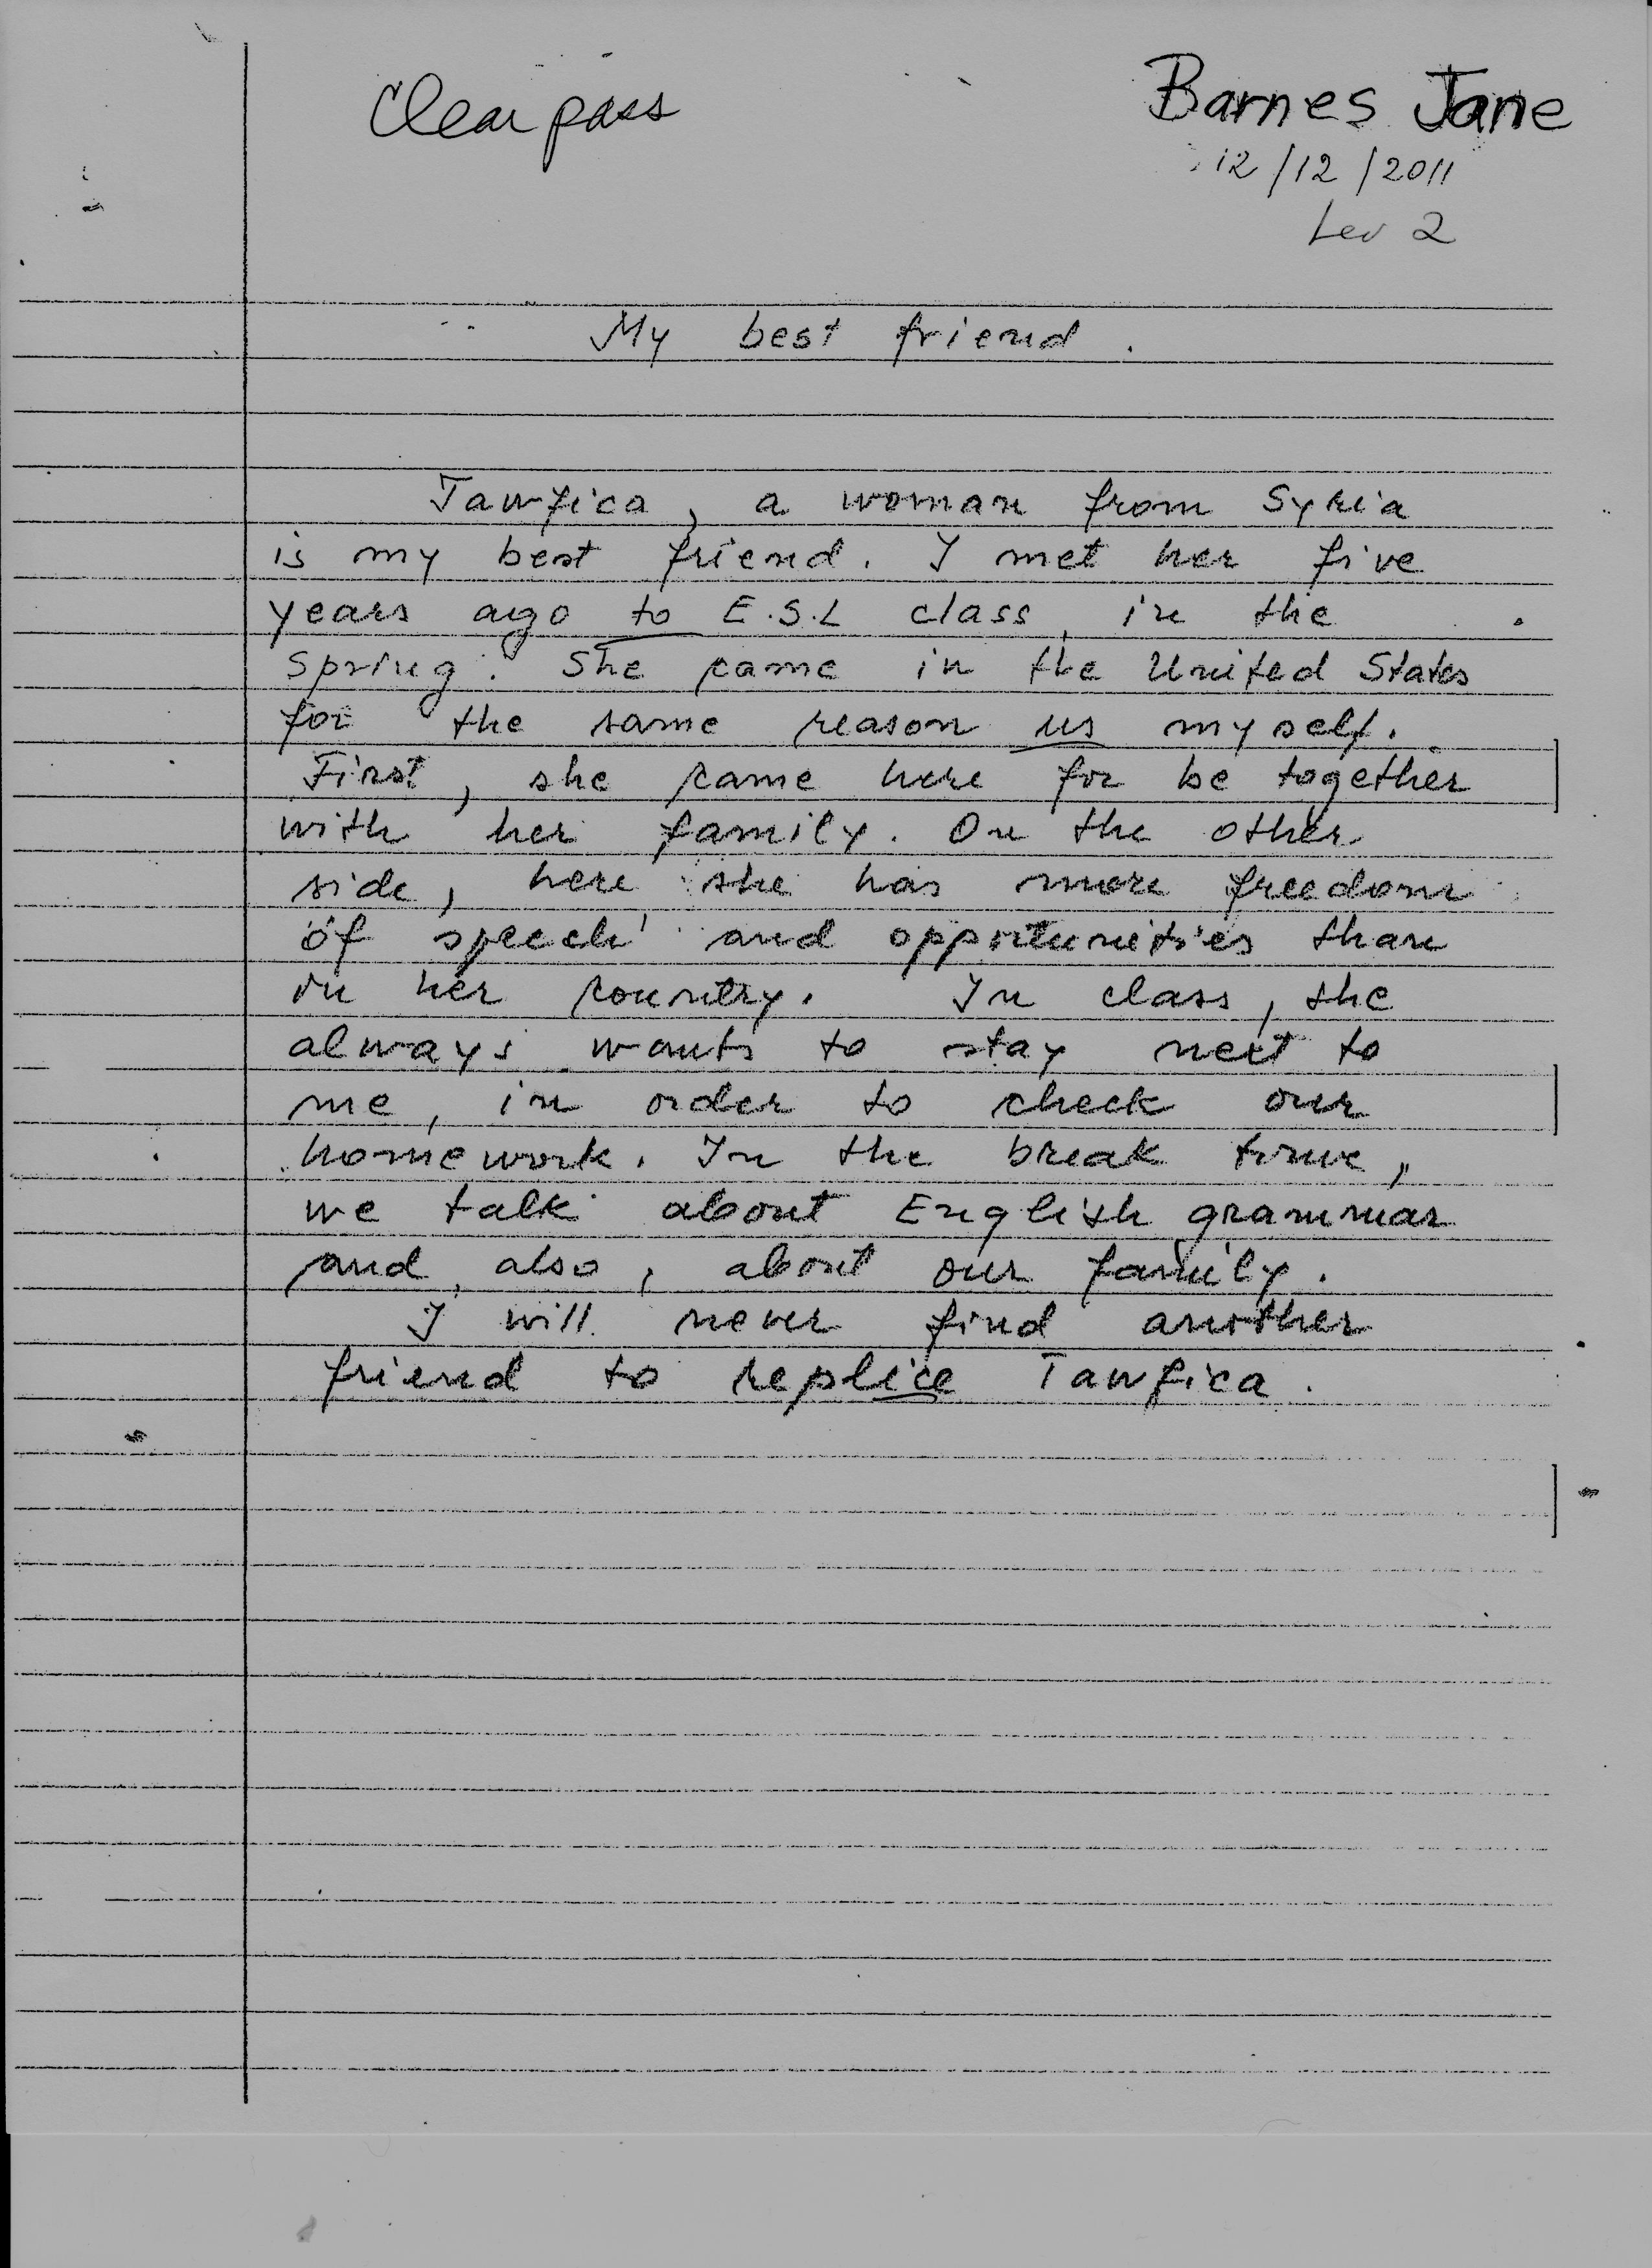 Clear pass
Barnes Jane
12/12/2011
Lev 2
My best friend.
Tawfica, a woman from Syria
is my best friend. I met her five
years ago to E.S.L class, in the
spring. She came in the United States
for the same reason us myself.
First, she came here for be together
with her family. On the other
side, here she has more freedom
of speech and opportunities than
in her country. In class, she
always wants to stay next to
me, in order to check our
homework. In the break time,
we talk about English grammar
and, also, about our family.
I will never find another
friend to replice Tawfica.